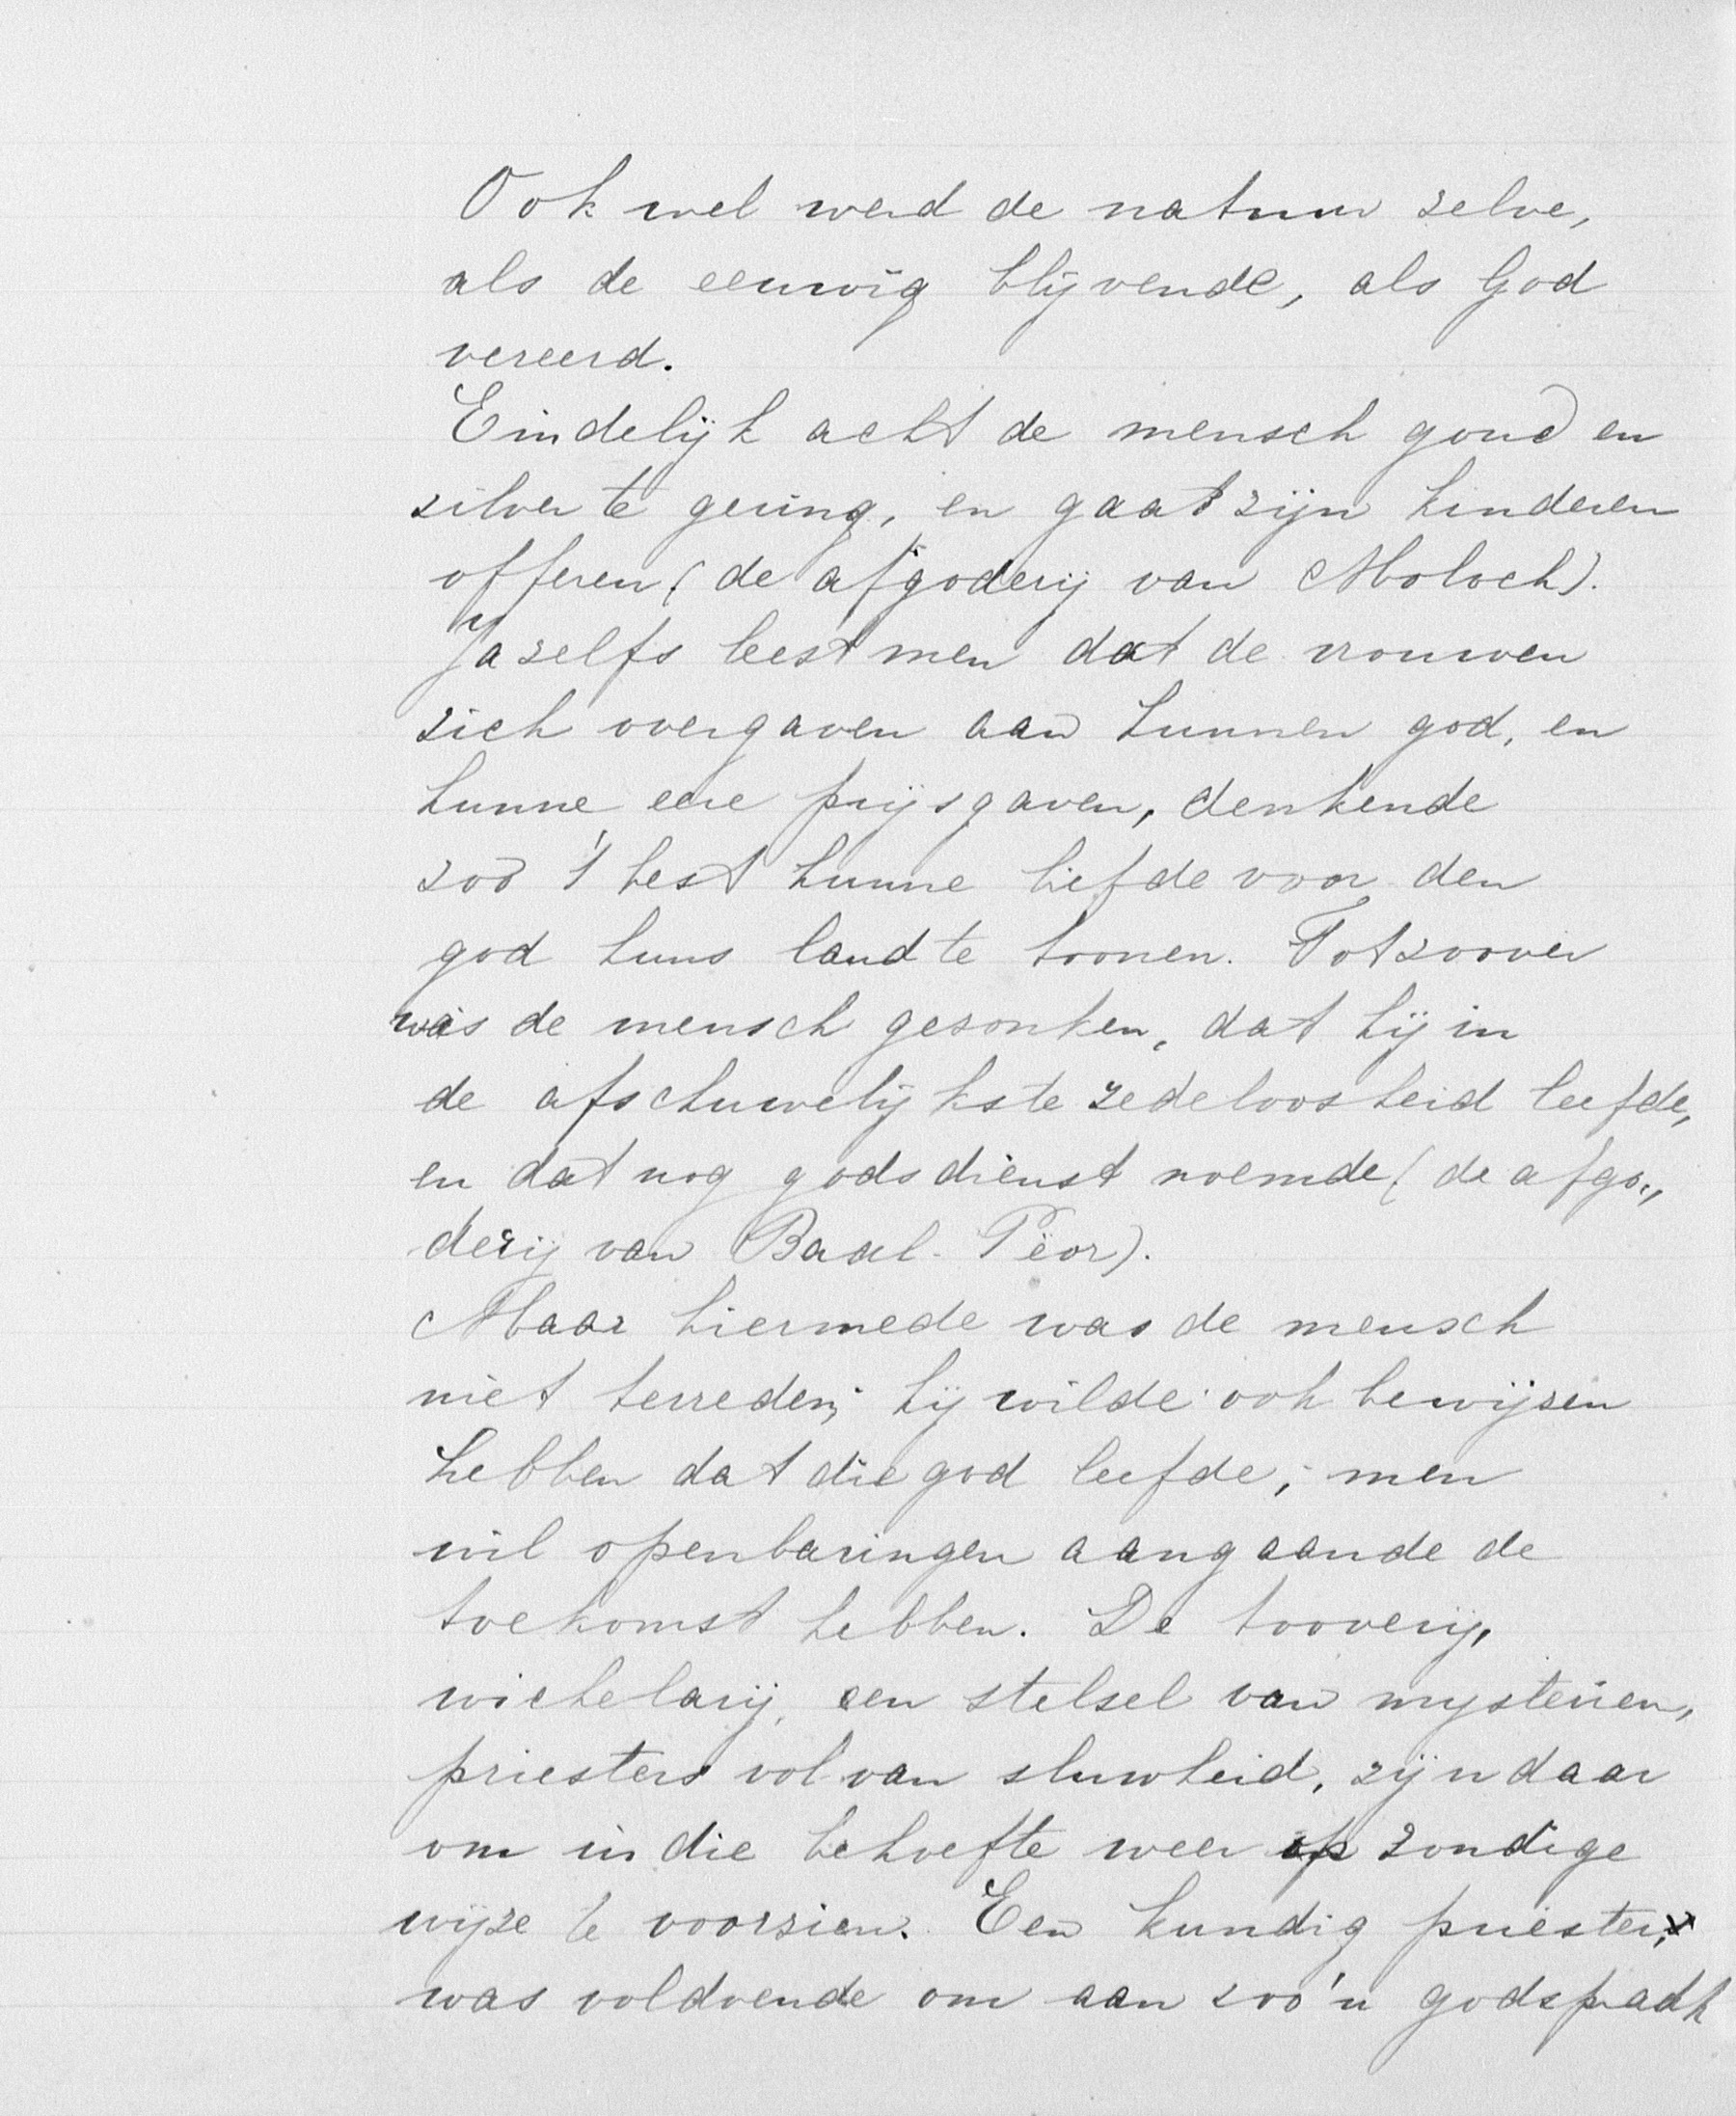 Ook wel werd de natuur zelve,
als de eeuwig blijvende, als God
vereerd.
Eindelijk acht de mensch goud en
zilver te gering, en gaat zijn kinderen
offeren (de afgoderij van Moloch).
Ja zelfs leest men dat de vrouwen
zich overgaven aan hunnen god, en
hunne eere prijsgaven, denkende
zoo 't best hunne liefde voor den
god huns land te toonen. Tot zoover
was de mensch gezonken, dat hij in
de afschuwelijkste zedeloosheid leefde,
en dat nog godsdienst noemde (de afgo„
derij van Baal-Peor).
Maar hiermede was de mensch
niet terreden; hij wilde ook bewijzen
hebben dat die god leefde; men
wil openbaringen aangaande de
toekomst hebben. De tooverij,
wichelarij, een stelsel van mysterien,
priesters vol van sluwheid, zijn daar
om in die behoefte weer op zondige
wijze te voorzien. Een kundig priester,
was voldoende om aan zoo'n godspraak